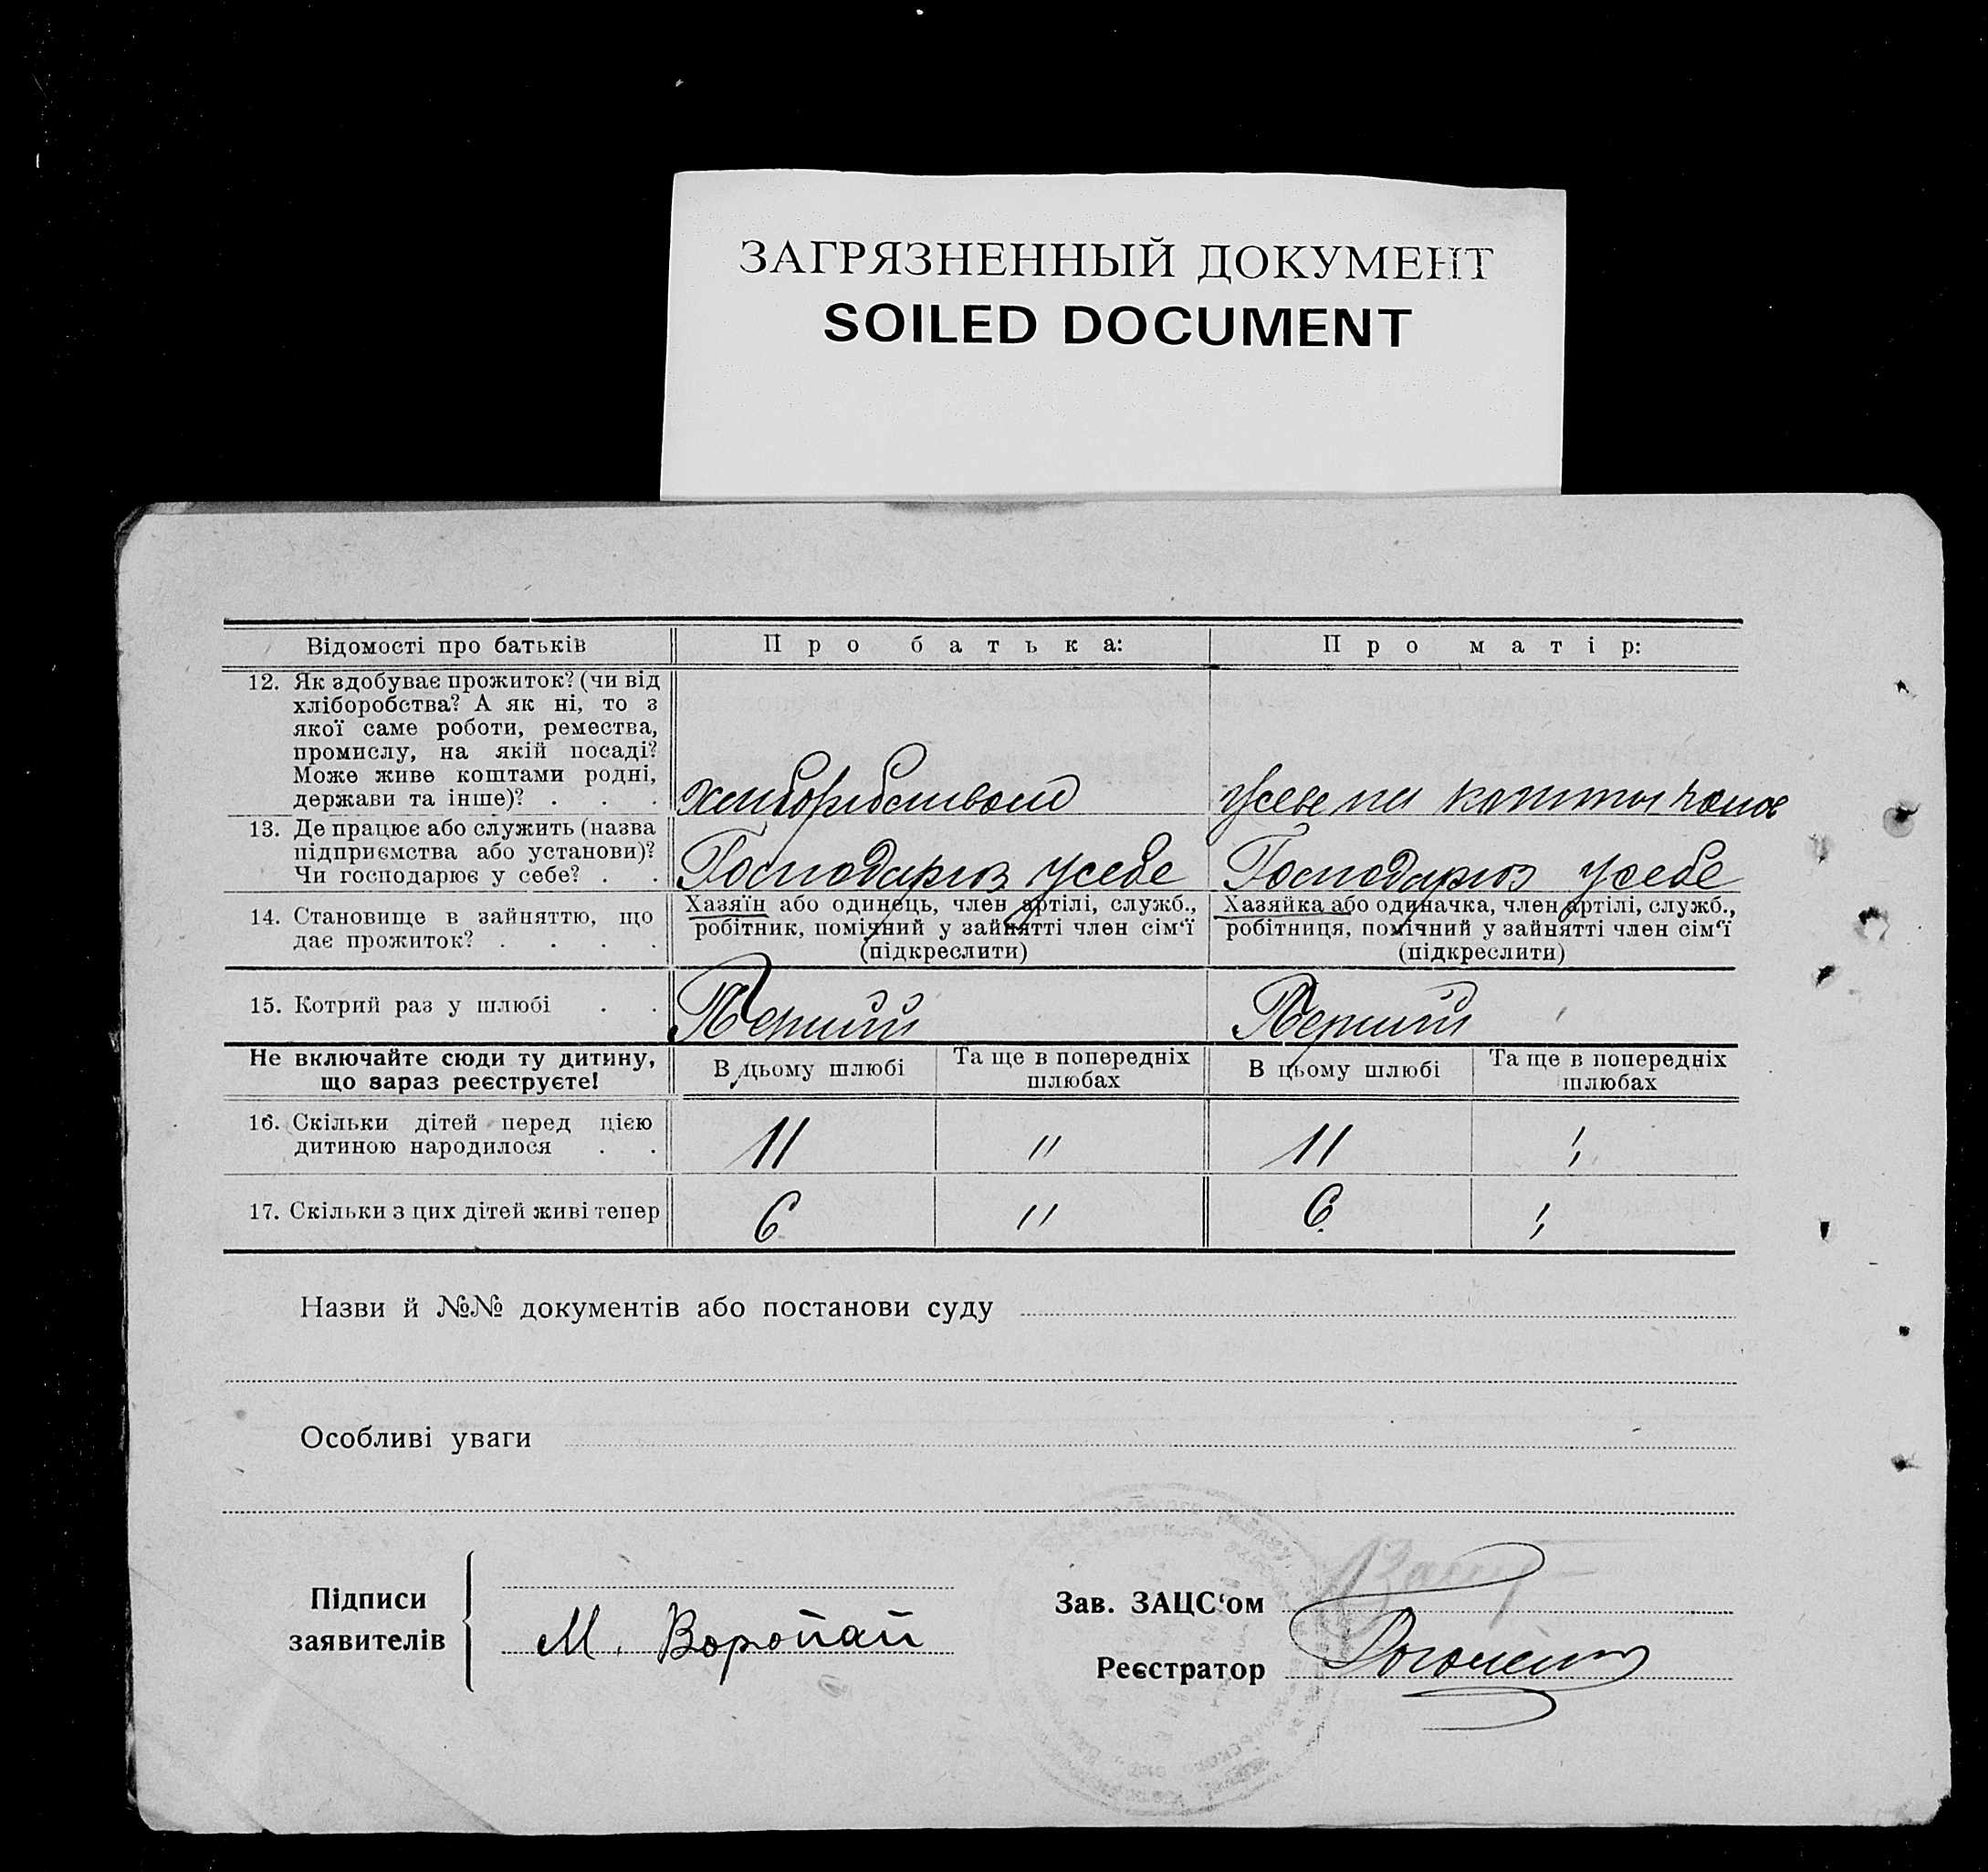 ЗАГРЯЗНЕННЫЙ ДОКУМЕНТ
SOILED DOCUMENT
Відомості про батьків
Про батька:
Про матір:
12. Як здобуває прожиток? (чи від
хліборобства? А як ні, то з
якої саме роботи, ремества,
промислу, на якій посаді?
Може живе коштами родні,
держави та інше)? . . .
13. Де працює або служить (назва
підприємства або установи)?
Чи господарює у себе? . .
Господарює усебе
Господарює усебе
14. Становище в зайняттю, що
дає прожиток? . . . .
Хазяїн або одинець, член артілі, служб.,
робітник, помічний у зайнятті член сім‘ї
(підкреслити)
Хазяйка або одиначка, член артілі, служб.,
робітниця, помічний у зайнятті член сім‘ї
(підкреслити)
15. Котрий раз у шлюбі . .
Перший
Перший
Не включайте сюди ту дитину,
що зараз реєструєте!
В цьому шлюбі
Та ще в попередніх
шлюбах
В цьому шлюбі
Та ще в попередніх
шлюбах
16. Скільки дітей перед цією
дитиною народилося . .
11
"
11
17. Скільки з цих дітей живі тепер
6
"
6
Назви й №№ документів або постанови суду
Особливі уваги
Підписи
заявителів
М. Воропай
Зав. ЗАЦС‘ом
Реєстратор